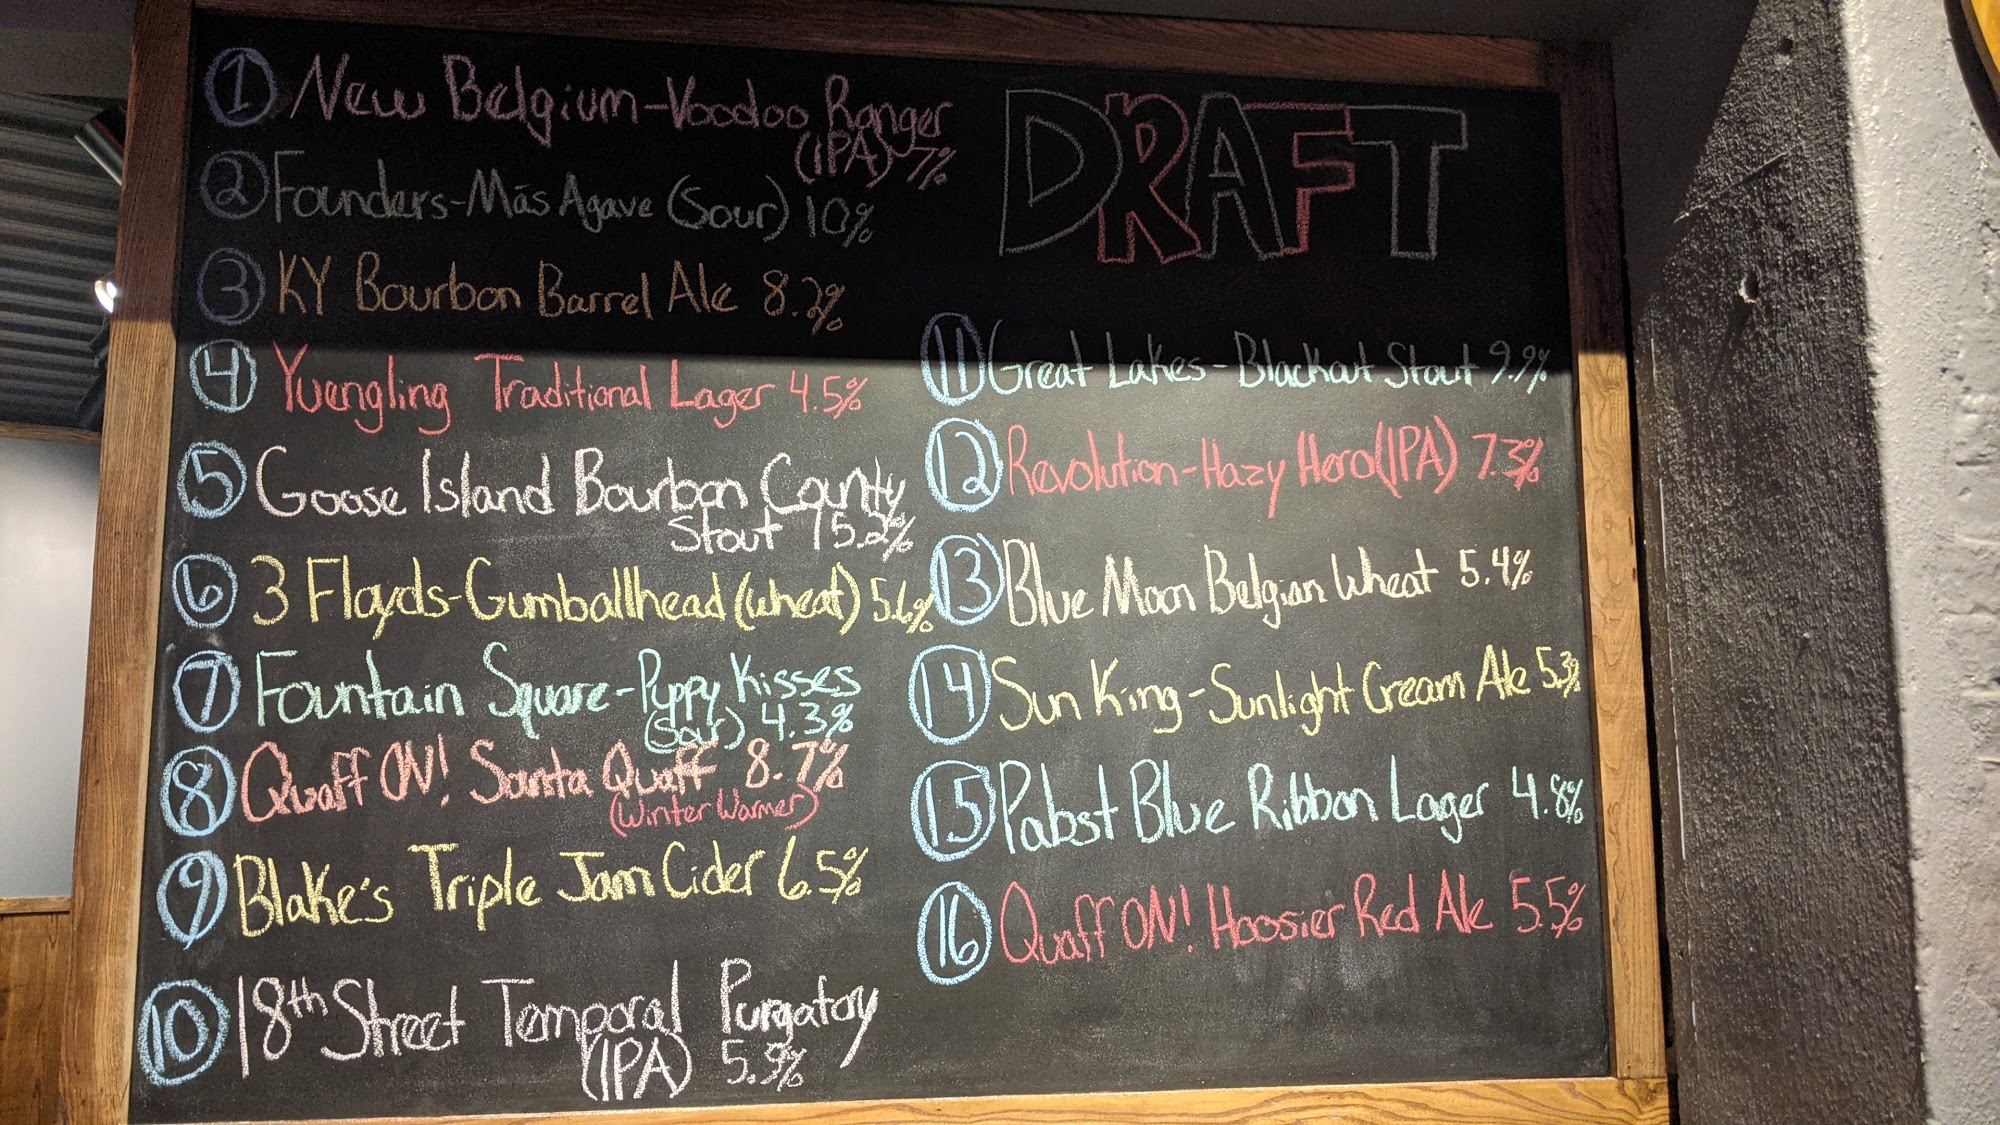 DRAFT
1 New Belgium-Voodoo Ranger
(IPA) 7%
2 Founders-Más Agave (Sour) 10%
3 KY Bourbon Barrel Ale 8.2%
4 Yuengling Traditional Lager 4.5%
5 Goose Island Bourbon County
Stout 15.2%
6 3 Floyds-Gumballhead (wheat) 5.6%
7 Fountain Square-Puppy Kisses
(Sour) 4.3%
8 Quaff ON! Santa Quaff 8.7%
(Winter Warmer)
9 Blake's Triple Jam Cider 6.5%
10 18th Street Temporal Purgatory
(IPA) 5.9%
11 Great Lakes-Blackout Stout 9.9%
12 Revolution-Hazy Hero (IPA) 7.3%
13 Blue Moon Belgian Wheat 5.4%
14 Sun King-Sunlight Cream Ale 5.3%
15 Pabst Blue Ribbon Lager 4.8%
16 Quaff ON! Hoosier Red Ale 5.5%